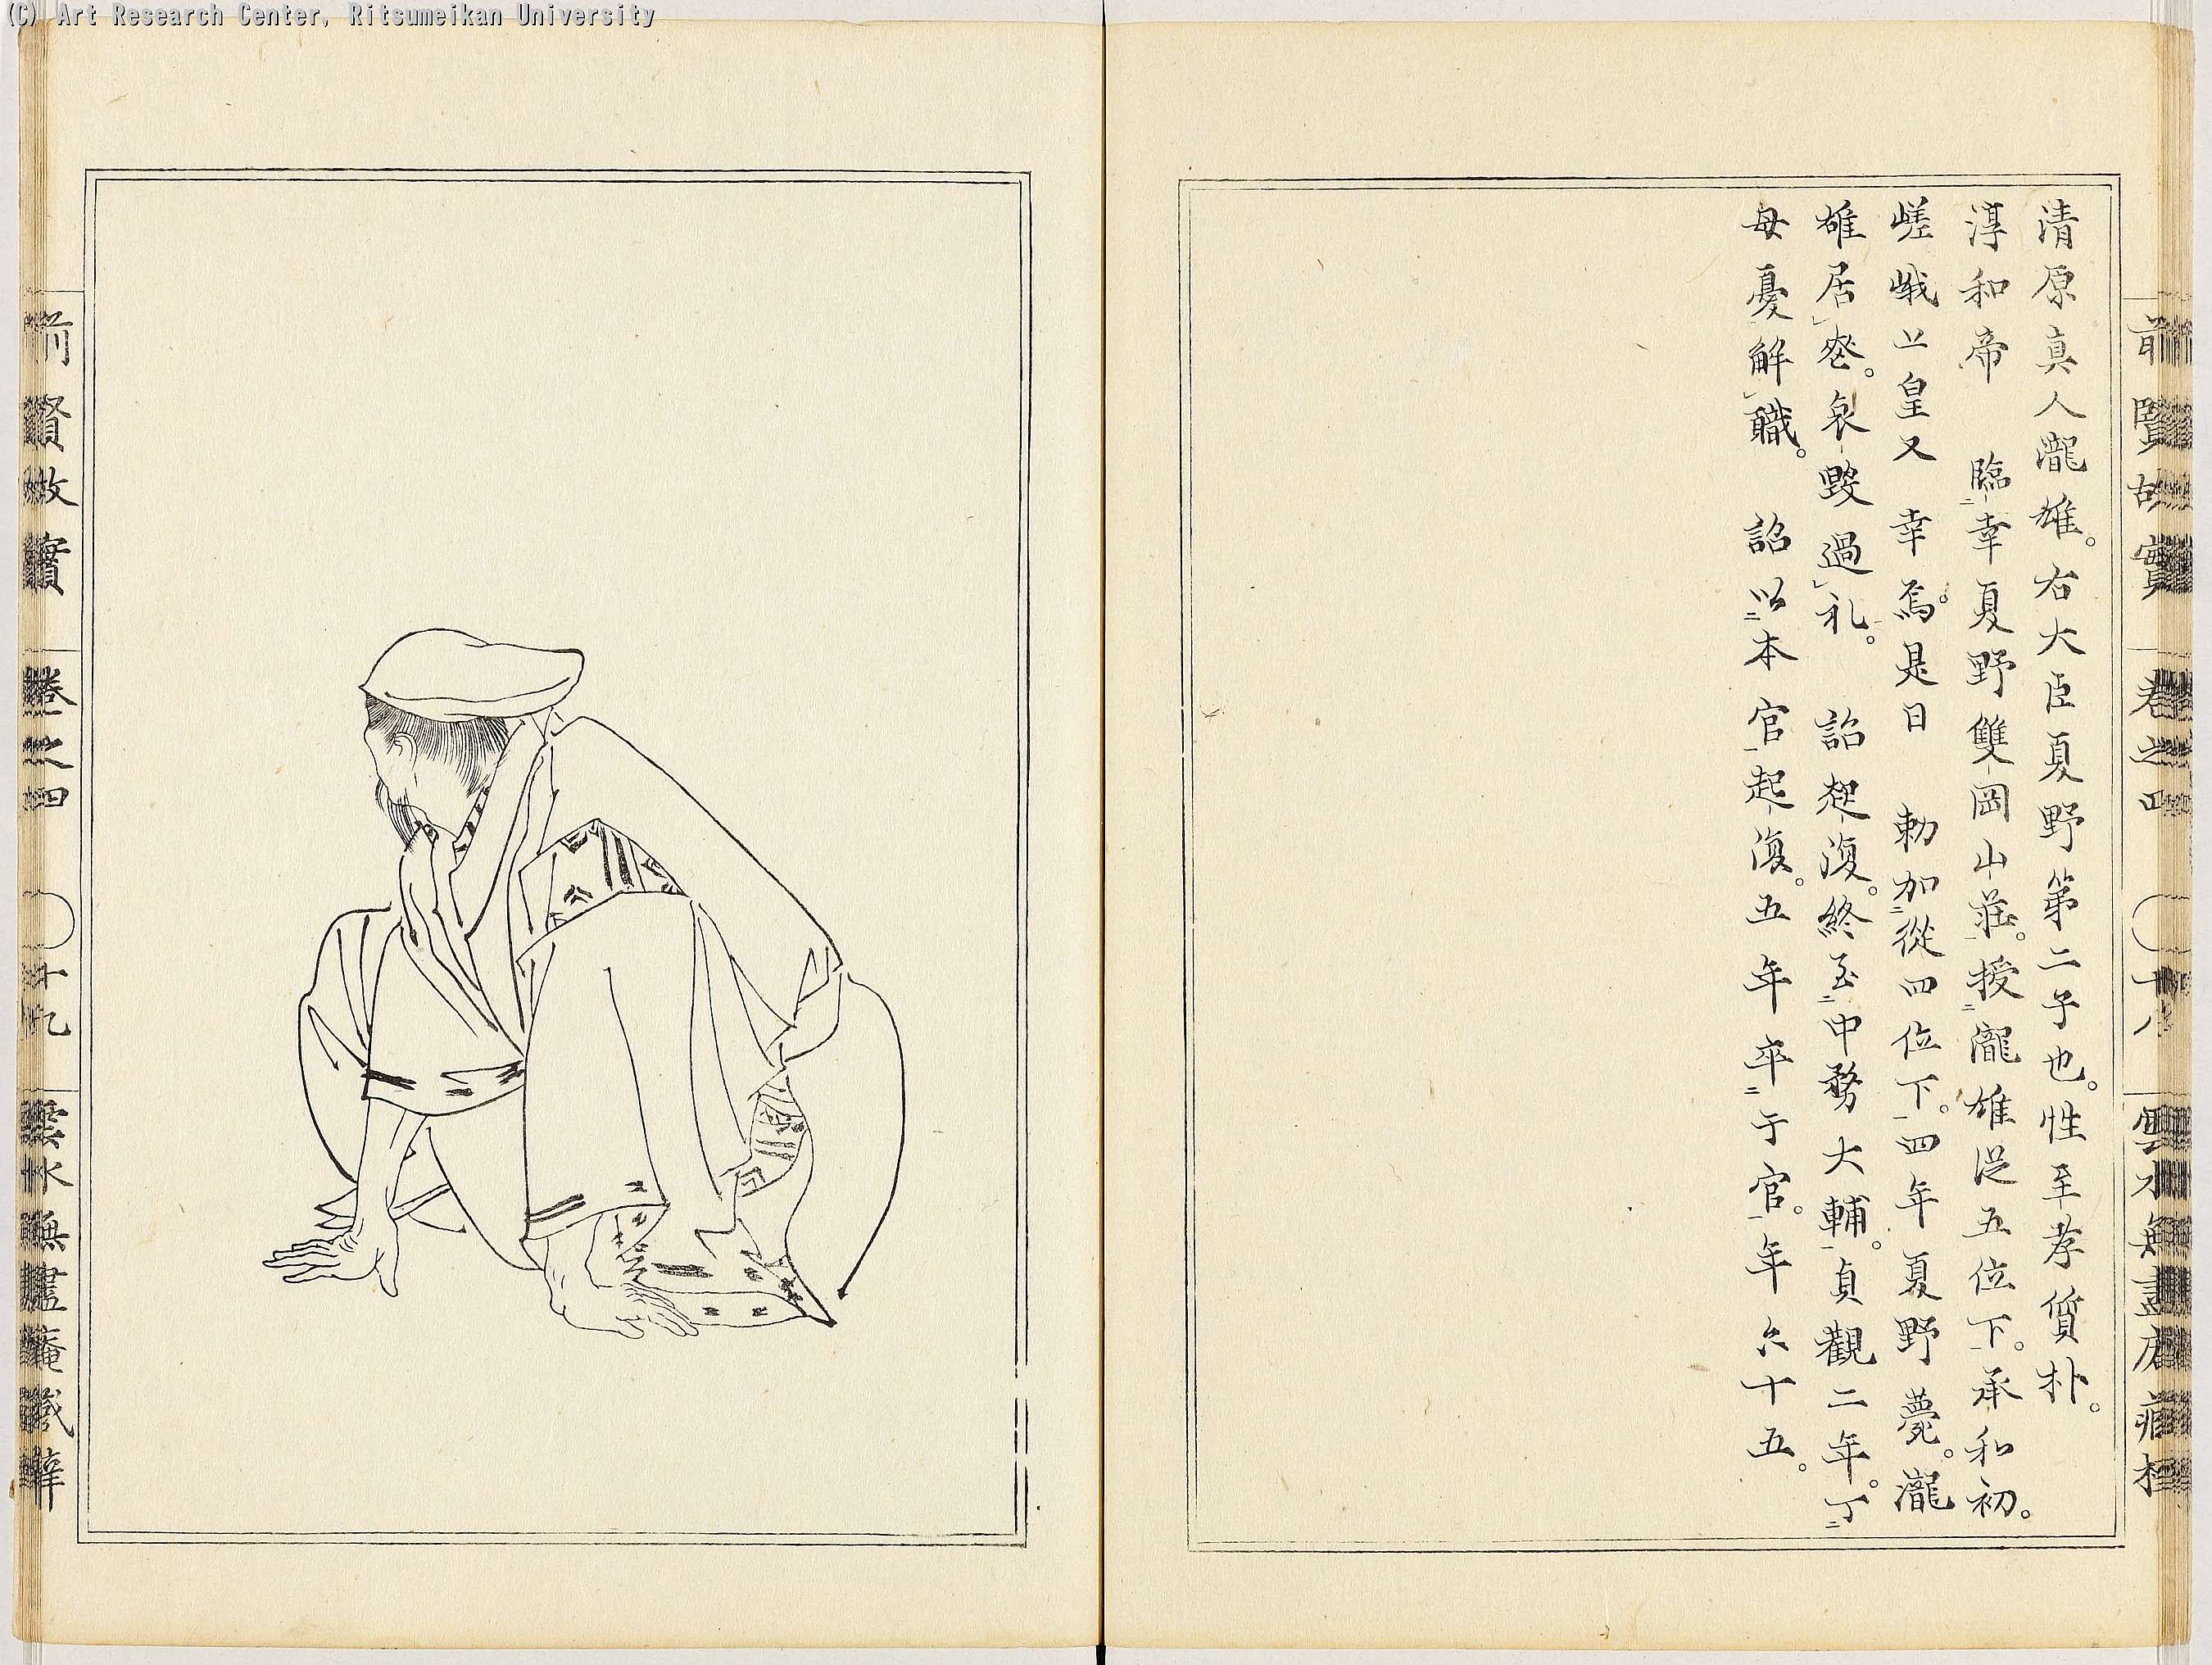 (C) Art Research Center, Ritsumeikan University
前賢故實 卷之四 〇十八 雲水無盡庵藏梓
清原真人瀧雄。右大臣夏野第二子也。性至孝質朴。
淳和帝 臨幸夏野雙岡山莊。授瀧雄從五位下。承和初。
嵯峨上皇又 幸焉。是日 勅加從四位下。四年夏野薨。瀧
雄居喪。哀毀過礼。 詔起復。終至中務大輔。貞觀二年。丁
母憂解職。 詔以本官起復。五年卒于官。年六十五。
前賢故實 卷之四 〇十九 雲水無盡庵藏梓